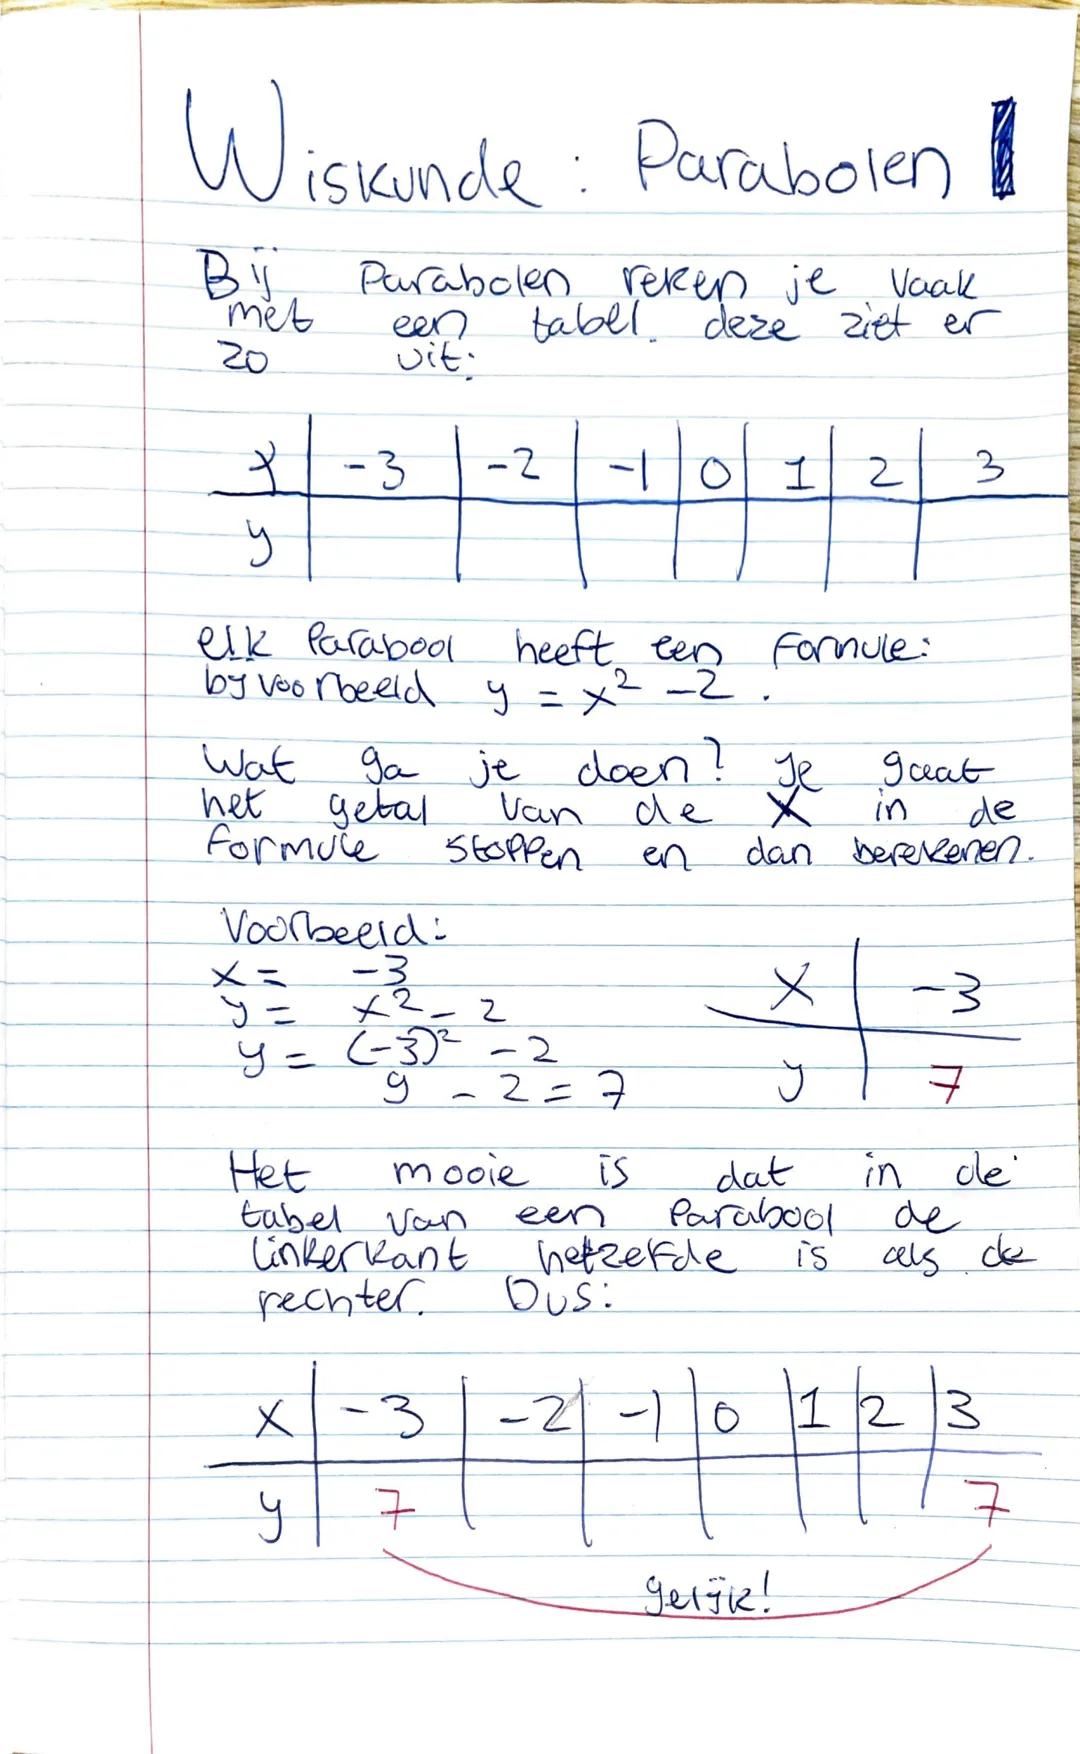 Wiskunde: Parabolen
Bij Parabolen reken je vaak
met een tabel. deze ziet er
zo uit:
x | -3 | -2 | -1 | 0 | 1 | 2 | 3
y
elk Parabool heeft een formule:
bijvoorbeeld y = x² - 2.
Wat ga je doen? Je gaat
het getal van de X in de
formule stoppen en dan berekenen.
Voorbeeld:
x = -3
y = x² - 2
y = (-3)² - 2
9 - 2 = 7
x | -3
y | 7
Het mooie is dat in de
tabel van een Parabool de
linkerkant hetzelfde is als de
rechter. Dus:
x | -3 | -2 | -1 | 0 | 1 | 2 | 3
y | 7 | | | | | | 7
gelijk!